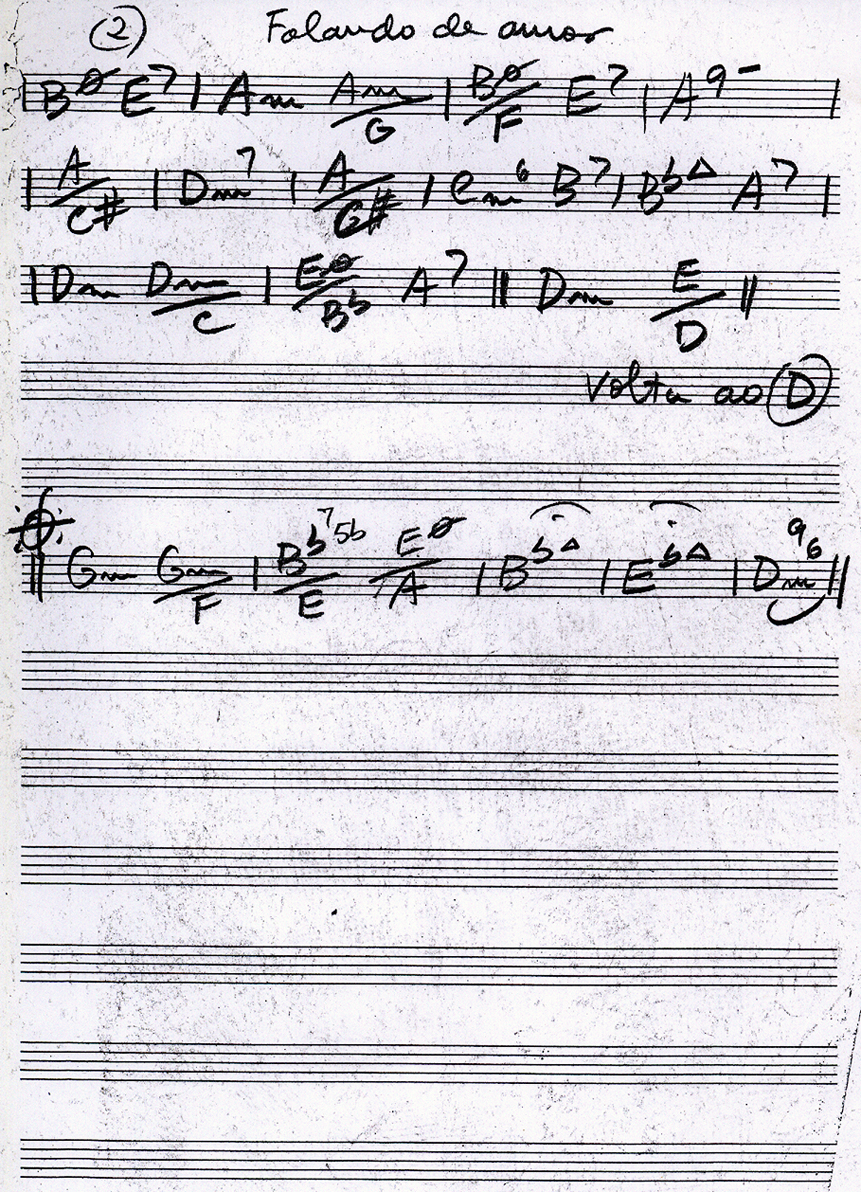 (2) Falando de amor
| Bø E7 | Am Am/G | Bø/F E7 | A9- |
| A/C# | Dm7 | A/G# | Cm6 B7 | BbΔ A7 |
| Dm Dm/C | Eø/Bb A7 || Dm E/D ||
Volta ao (D)
|| Gm Gm/F | Bb7 5b/E Eø/A | BbΔ | EbΔ | Dm 9 6 ||